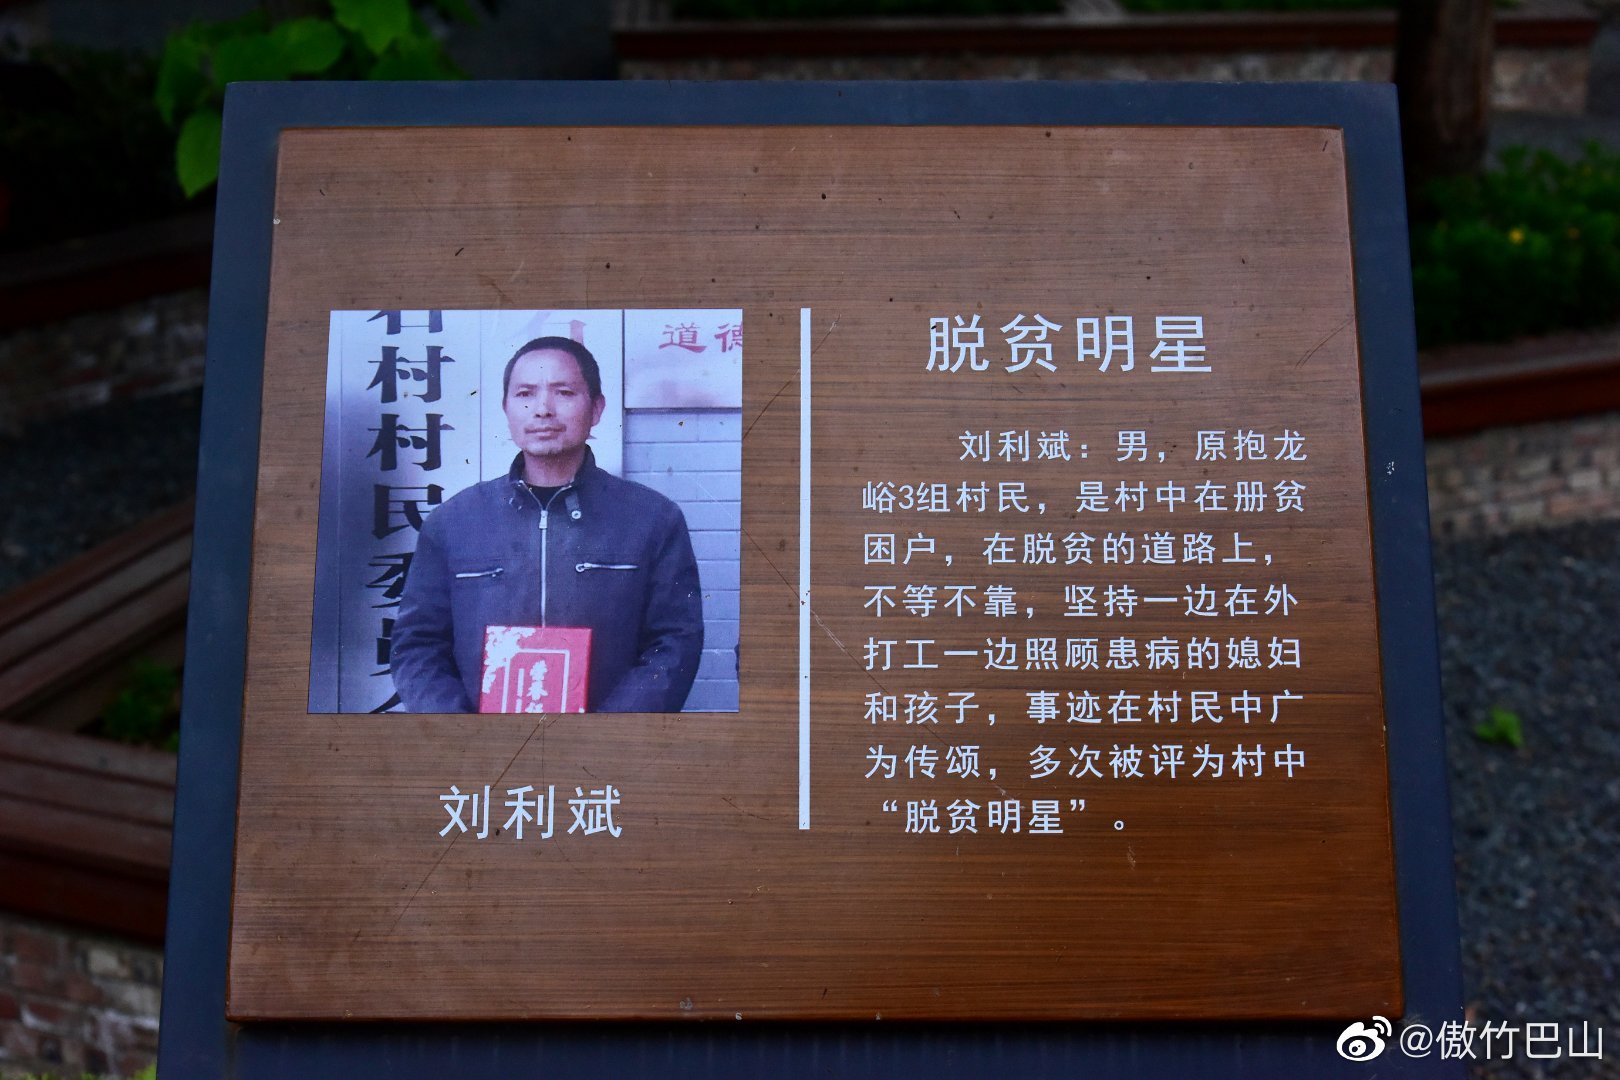 村村民
道德
荣誉
刘利斌
脱贫明星
刘利斌：男，原抱龙
峪3组村民，是村中在册贫
困户，在脱贫的道路上，
不等不靠，坚持一边在外
打工一边照顾患病的媳妇
和孩子，事迹在村民中广
为传颂，多次被评为村中
“脱贫明星”。
@傲竹巴山